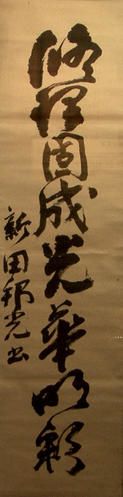 修理固成光華明彩
新田邦光書